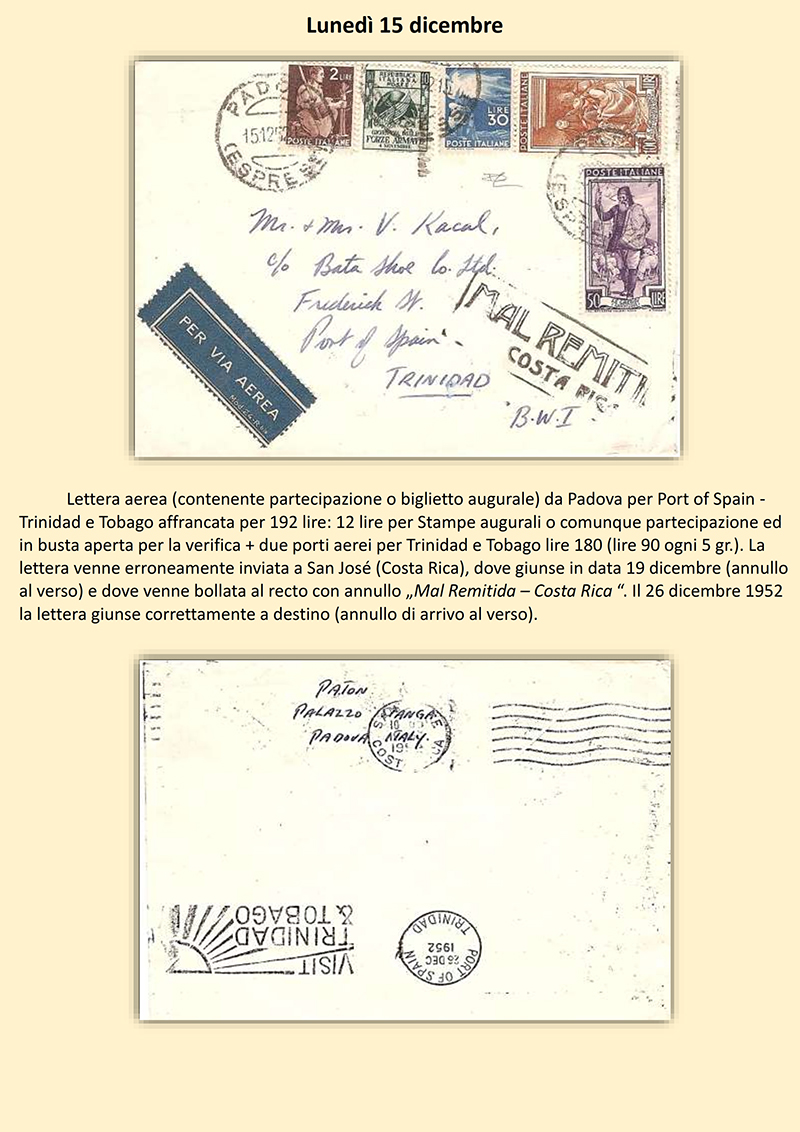 Lunedì 15 dicembre
2 LIRE
POSTE ITALIANE
REPUBBLICA
ITALIANA
10
FORZE ARMATE
4 NOVEMBRE
LIRE
30
POSTE ITALIANE
POSTE ITALIANE
LIRE
PADO
15.12.52
(ESPRES
POSTE ITALIANE
50 LIRE
Mr. & Mrs. V. Kacal,
c/o Bata Shoe Co. Ltd.
Frederick St.
Port of Spain
TRINIDAD
B.W.I
PER VIA AEREA
MAL REMITI
COSTA RIC
Lettera aerea (contenente partecipazione o biglietto augurale) da Padova per Port of Spain -
Trinidad e Tobago affrancata per 192 lire: 12 lire per Stampe augurali o comunque partecipazione ed
in busta aperta per la verifica + due porti aerei per Trinidad e Tobago lire 180 (lire 90 ogni 5 gr.). La
lettera venne erroneamente inviata a San José (Costa Rica), dove giunse in data 19 dicembre (annullo
al verso) e dove venne bollata al recto con annullo „Mal Remitida – Costa Rica “. Il 26 dicembre 1952
la lettera giunse correttamente a destino (annullo di arrivo al verso).
PATON
PALAZZO
PADOVA ITALY.
COST
VISIT
TRINIDAD
& TOBAGO
PORT OF SPAIN
26 DEC
1952
TRINIDAD